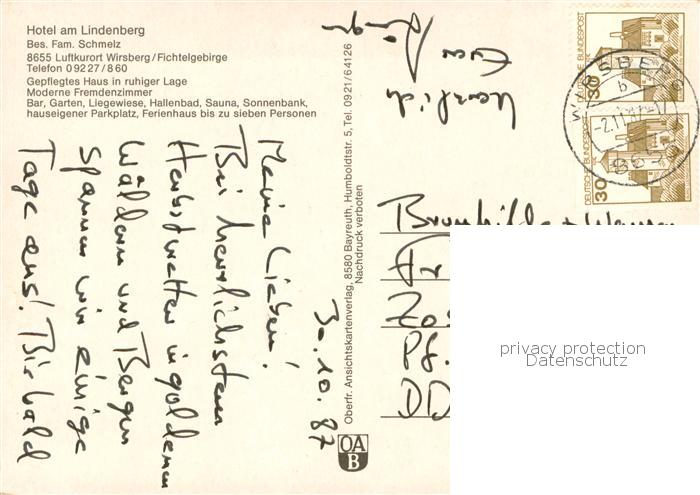 Hotel am Lindenberg
Bes. Fam. Schmelz
8655 Luftkurort Wirsberg/Fichtelgebirge
Telefon 09227/860
Gepflegtes Haus in ruhiger Lage
Moderne Fremdenzimmer
Bar, Garten, Liegewiese, Hallenbad, Sauna, Sonnenbank,
hauseigener Parkplatz, Ferienhaus bis zu sieben Personen
30.10.87
Meine Lieben!
Bei herrlichstem
Herbstwetter in goldenen
Wäldern und Bergen
spannen wir einige
Tage aus! Bis bald
Herzlich
Eva
Oberfr. Ansichtskartenverlag, 8580 Bayreuth, Humboldtstr. 5, Tel. 0921/64126
Nachdruck verboten
OA
B
DEUTSCHE BUNDESPOST
30
DEUTSCHE BUNDESPOST
30
WIRSBERG
b
8655
DD
privacy protection
Datenschutz